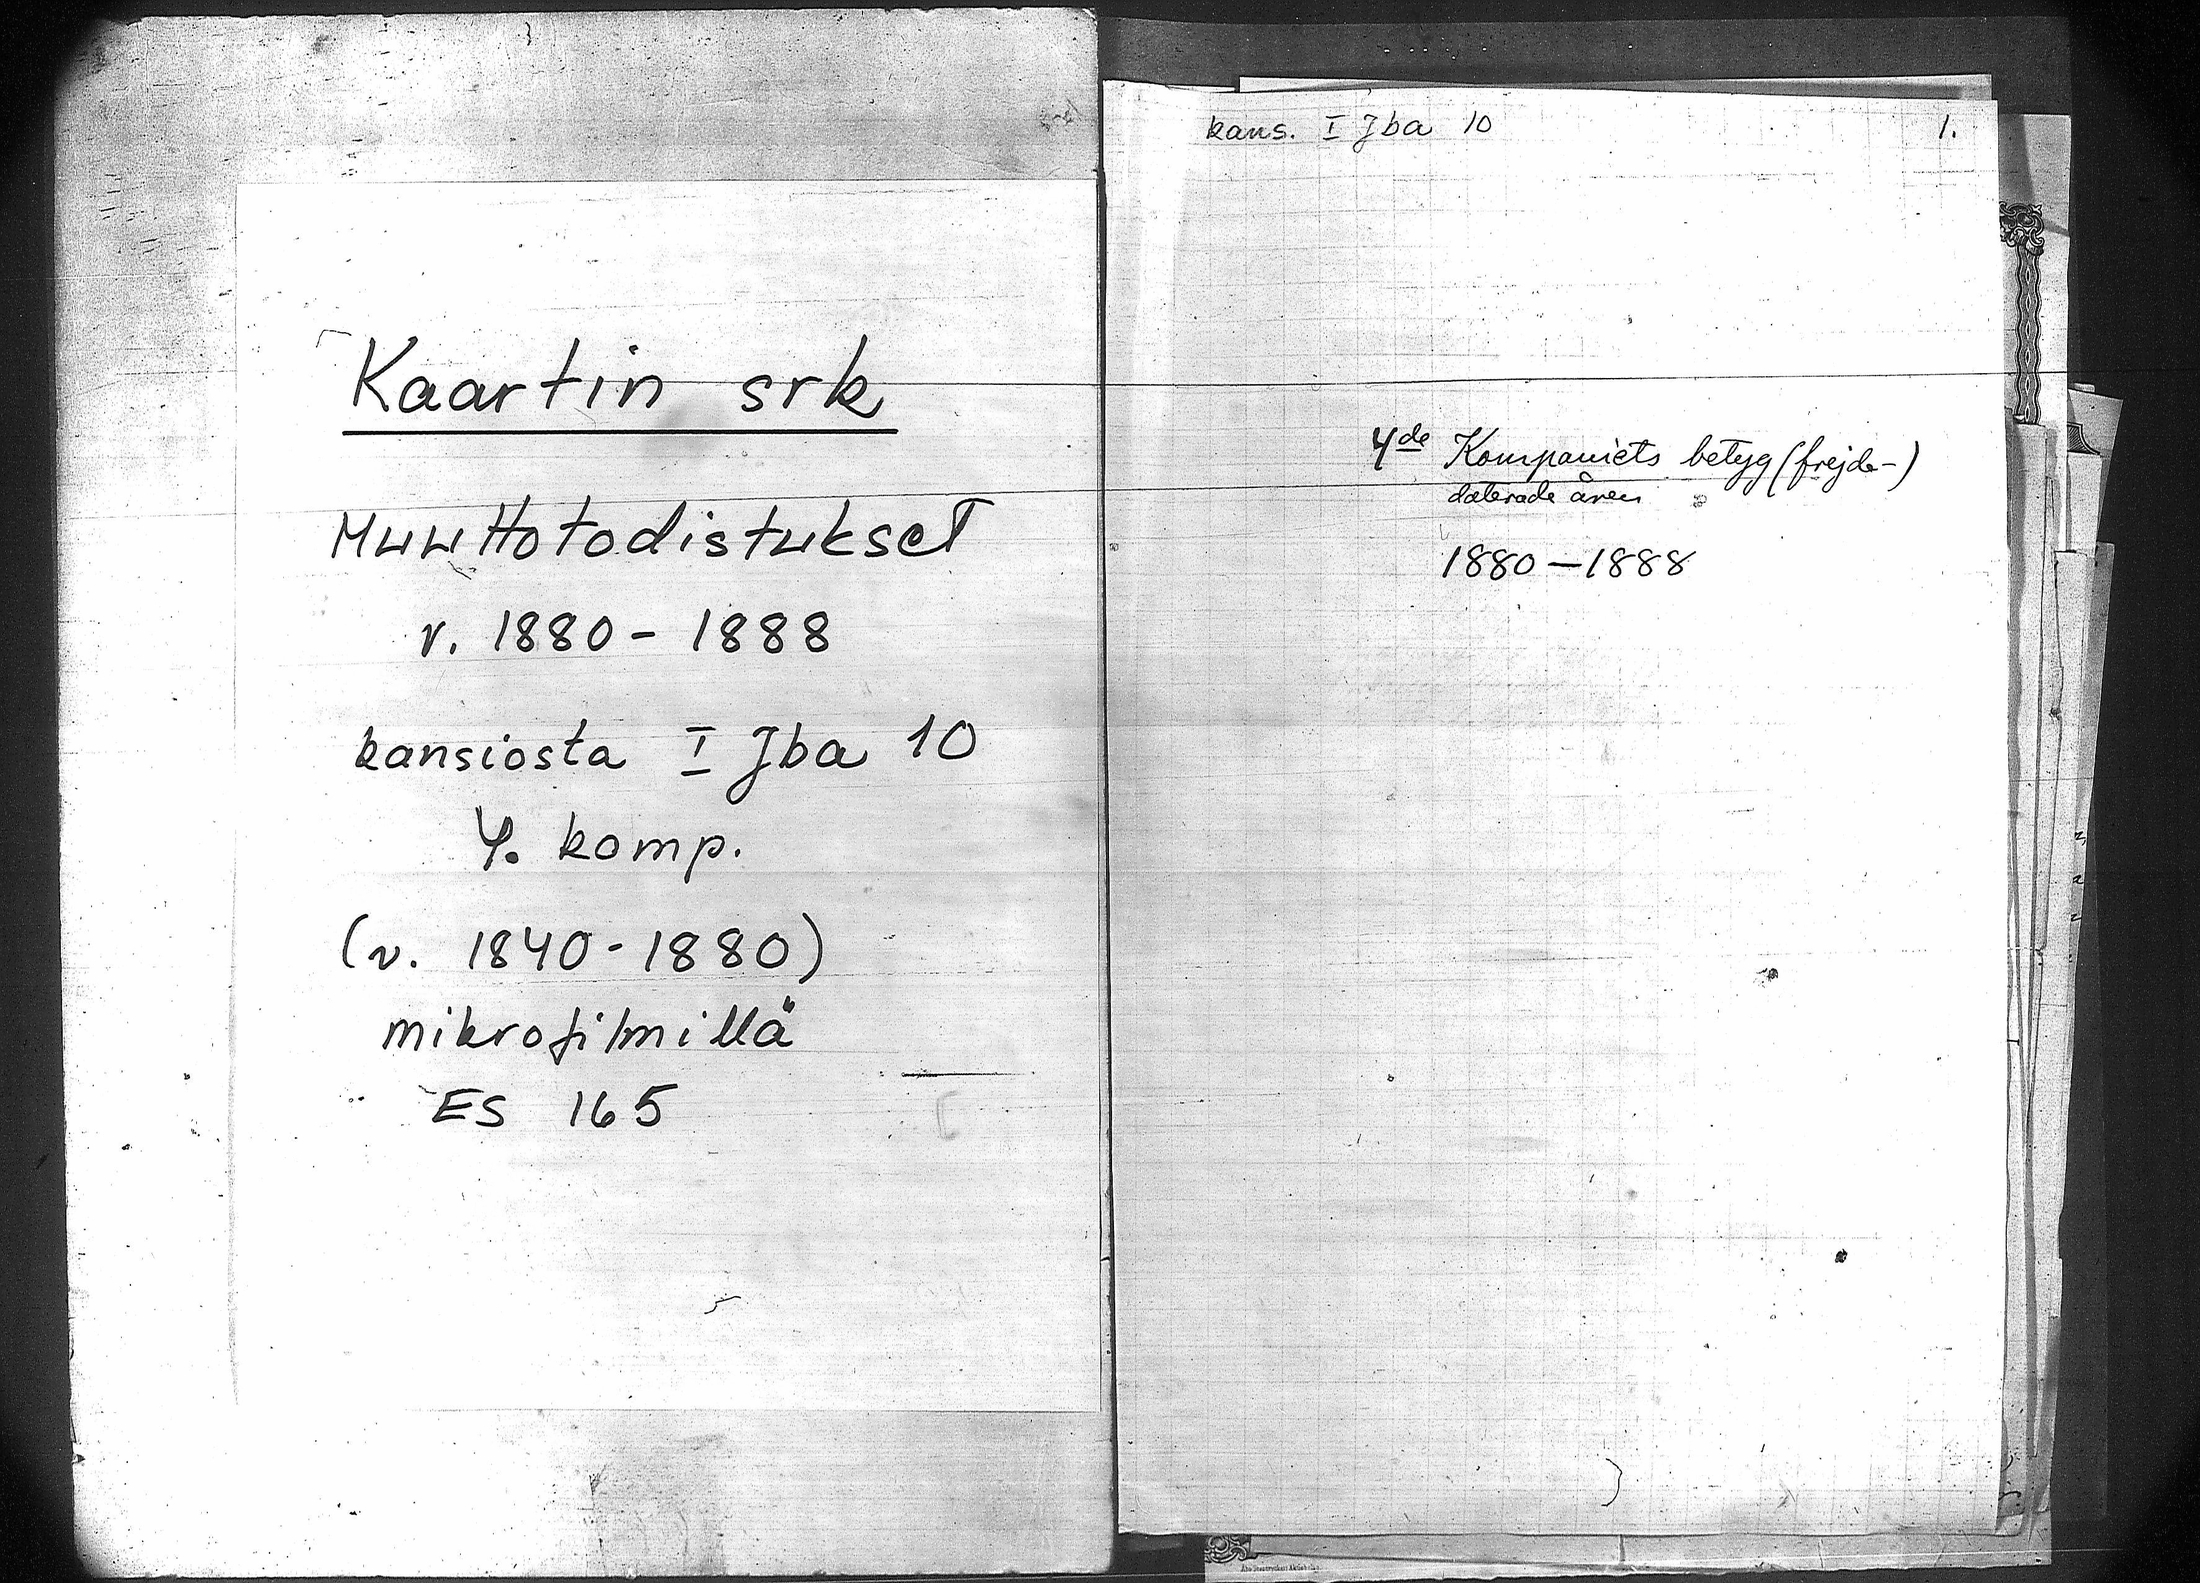 Kaartin srk
Muuttotodistukset
v. 1880 - 1888
kansiosta I Jba 10
4. komp.
(v. 1840 - 1880)
mikrofilmillä
ES 165
kans. I Jba 10
1.
4de Kompaniets betyg (frejde-)
daterade åren
1880 — 1888